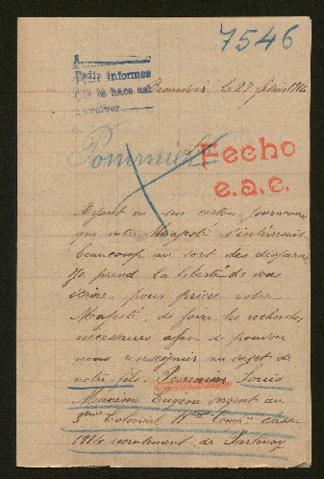 7546
Pedir informes
que se hace así
Beauvoir le 27 février 1916
Fecho
e.a.e.
Sire
Ayant vu sur certain journeaux
que votre Majesté s'intéressait
beaucoup au sort des disparus
Je prend la liberté de vous
écrire pour prier votre
Majesté, de faire les recherches
nécessaires afin de pouvoir
nous renseigner au sujet de
notre fils. Louis
Maxime Eugène sergent au
3ème Colonial 11ème Comp. classe
1914 recrutement de Partenay